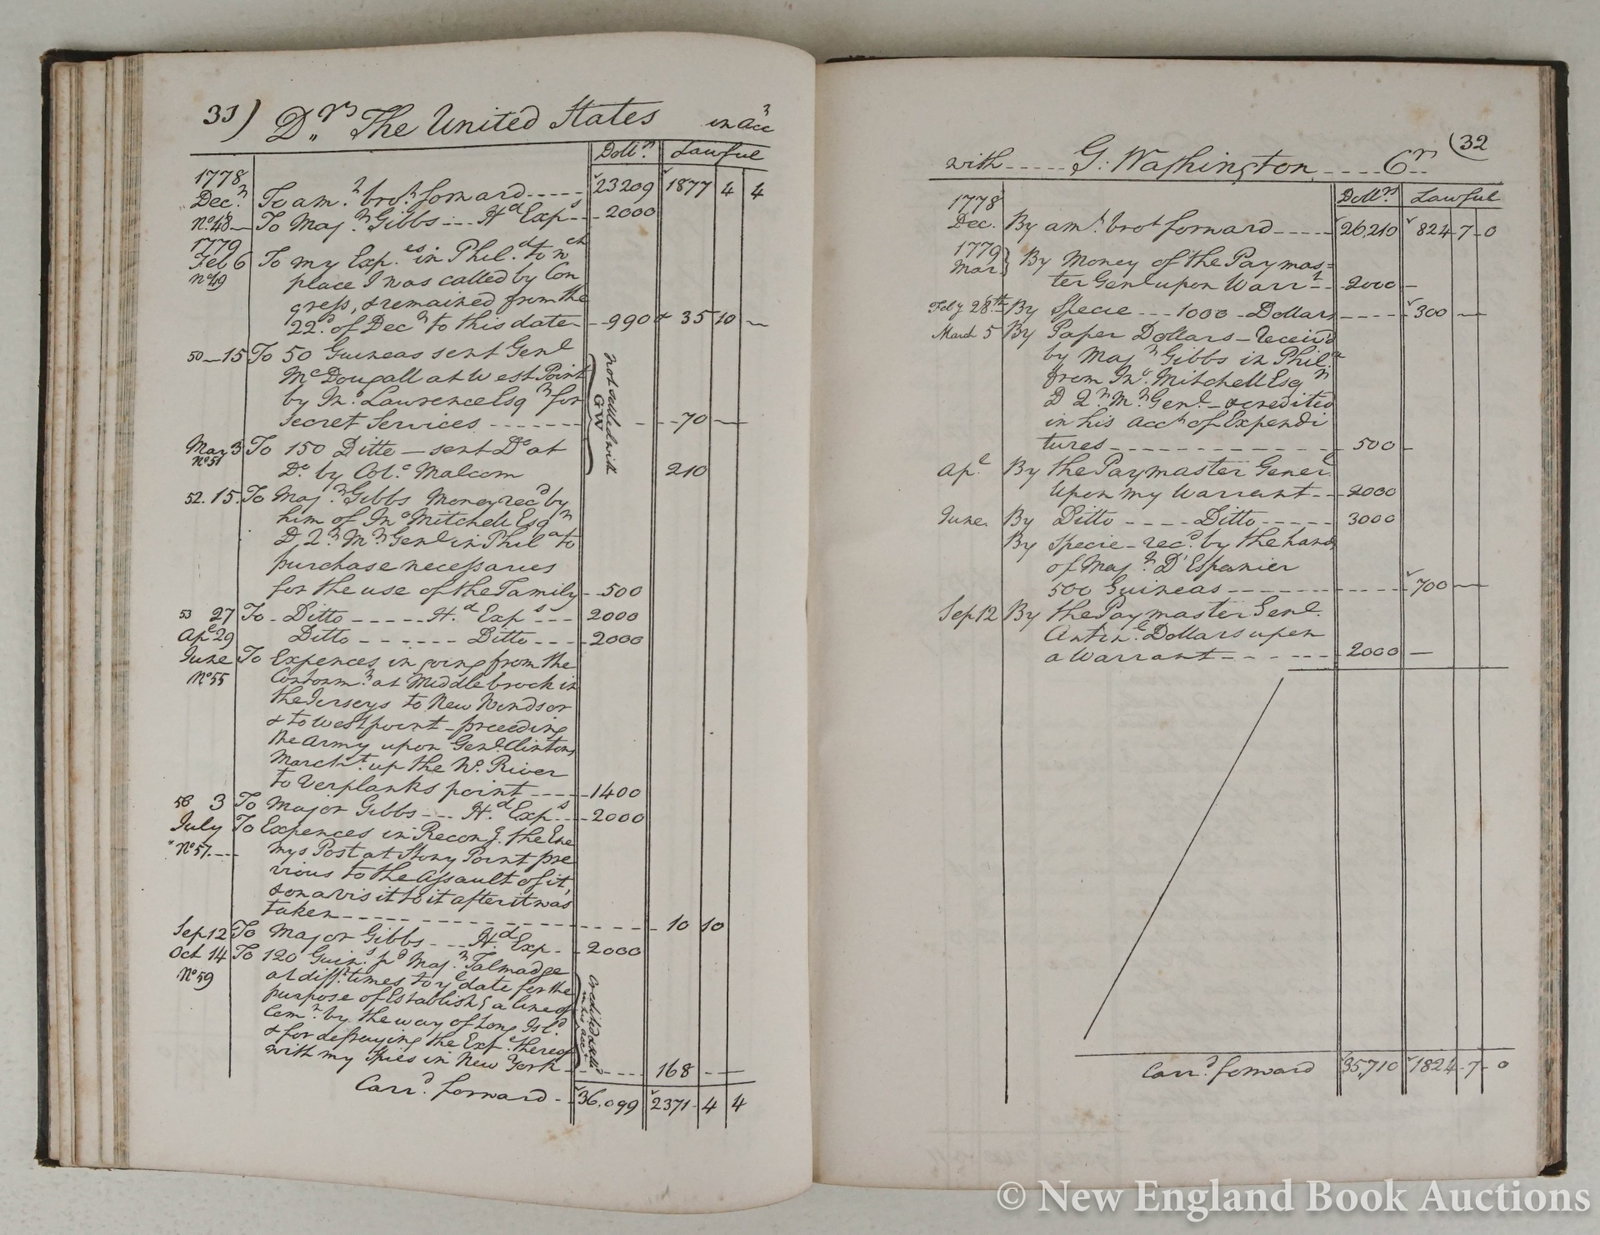 31) Drs The United States in acc
Dollrs Lawful
1778
Decr To amt brot forward 23209 1877 4 4
No 48 To Majr Gibbs Hd Exps 2000
1779
Feb 6 To my Expes in Phild to wch
No 49 place I was called by Con
gress, & remained from the
22d of Decr to this date 990 & 35 10
50 15 To 50 Guineas sent Genl
McDougall at West Point
by Jno Lawrence Esqr for
Secret Services 70
not settled with
GW
Mar 3 To 150 Ditto — sent Do at
No 51 Do by Colo Malcom 210
52. 15. To Majr Gibbs Money recd by
him of Jno Mitchell Esqr
D Qr Mr Genl in Phila to
purchase necessaries
for the use of the Family 500
53 27 To Ditto Hd Exps 2000
Apl 29 Ditto Ditto 2000
June To Expences in going from the
No 55 Cantonmt at Middlebrook in
the Jerseys to New Windsor
& to West point preceeding
the Army upon Genl Clintons
March up the No River
to Verplanks point 1400
56 3 To Major Gibbs Hd Exps 2000
July To Expences in Recong the Ene
No 57 mys Post at Stony Point pre
vious to the Assault of it,
& on a visit to it after it was
taken 10 10
Sep 12 To Major Gibbs Hd Exp 2000
Oct 14 To 120 Guins pd Majr Talmadge
No 59 at difft times to ye date for the
purpose of Establishg a line of
Comn by the way of Long Isld
& for defraying the Expe thereof
with my Spies in New York 168
Carrd forward 36,099 2371 4 4
32
with G: Washington Cr
Dollrs Lawful
1778
Dec. By amt brot forward 26,210 824 7 0
1779 By Money of the Paymas=
Mar ter Genl upon Warrt 2000
Feby 28th By Specie 1000 Dollars 300
March 5 By Paper Dollars — receivd
by Majr Gibbs in Phila
from Jno Mitchell Esqr
D Qr Mr Genl — & credited
in his acct of Expendi
tures 500
Apl By the Paymaster Generl
Upon my Warrant 2000
June. By Ditto Ditto 3000
By Specie — recd by the hands
of Majr D'Espanier
500 Guineas 700
Sep 12 By the Paymaster Genl
Dollars upon
a Warrant 2000
Carrd forward 35,710 1824 7 0
© New England Book Auctions